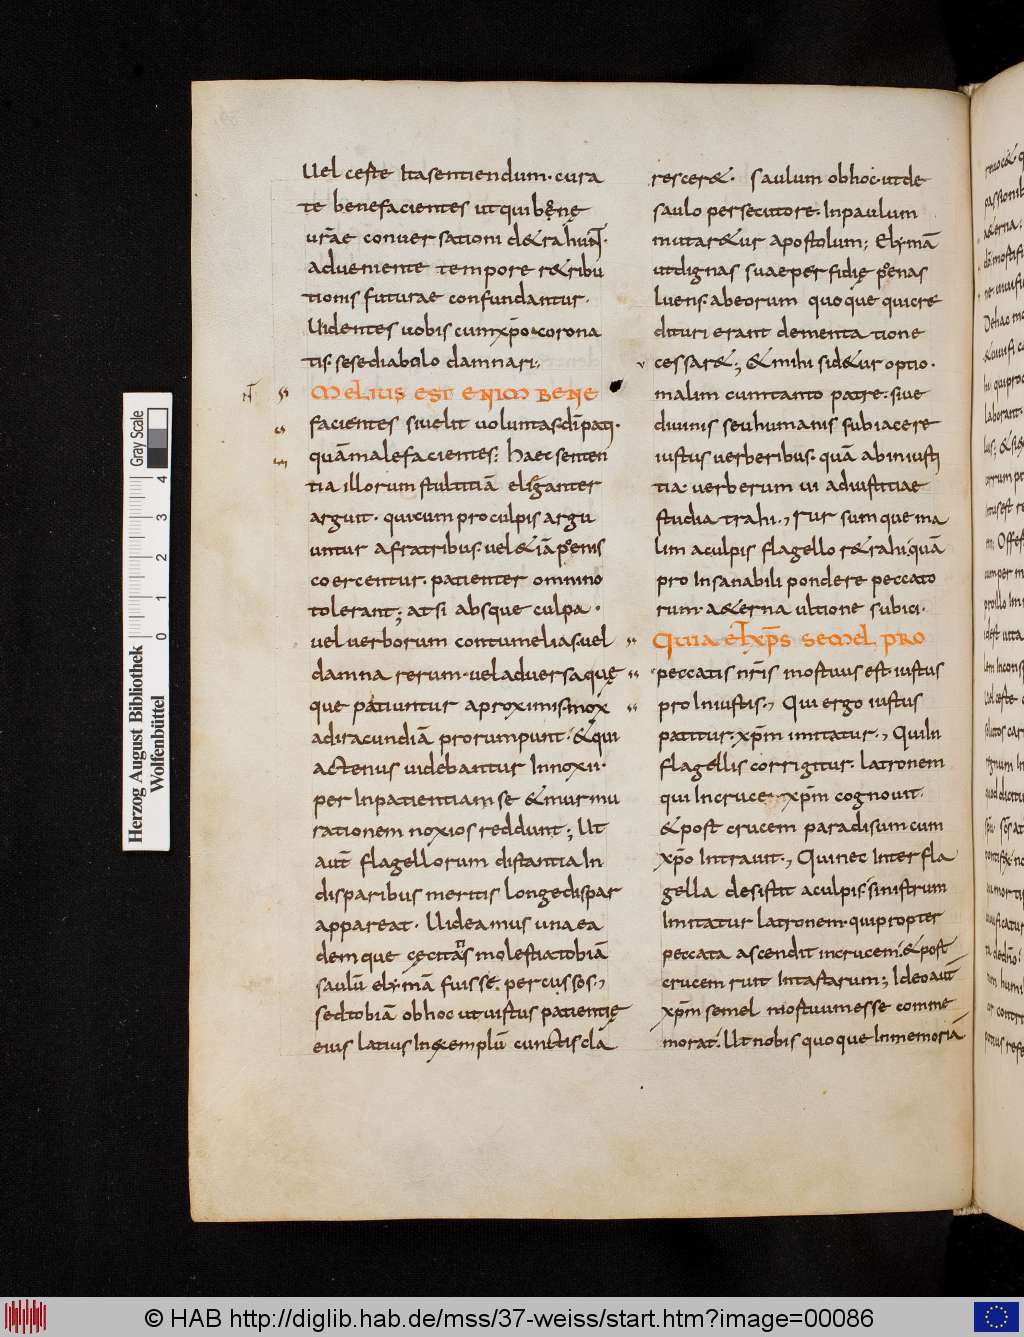 Uel ceste Itasentiendum· cura
te benefacientes utquibonę
ur̄ae conuersationi d&rahunt·
adueniente tempore r&ribu
tionis futurae confundantur·
Uidentes uobis cumxp̄o corona
tis· sesediabolo damnari;
melius est enim bene
facientes siuelit uoluntasdīpati·
quāmalefacientes; haec senten
tia illorum stultitiā eleganter
arguit· quicum proculpis argu
untur afratribus· uel&iāpęnis
coercentur· patienter omnino
tolerant; atsi absque culpa·
uel uerborum contumelias· uel
damna rerum· ueladuersaquę
que patiuntur aproximis· mox
adiracundiā prorumpunt· &qui
actenus uidebantur Innoxii·
per Inpatientiam se &murmu
rationem noxios reddunt; Ut
aut̄ flagellorum distantia In
disparibus meritis longedispar
appareat· Uideamus unaea
demque cęcitatis molestiatobiā
saulū elymā fuisse percussos;
sedtobiā obhoc utuirtus patientię
eius latius Inexemplū cunctis cla
resceret· Saulum obhoc· utde
saulo persecutore· Inpaulum
mutar&ur apostolum; Elymā
utdignas suaeperfidię poenas
luens· abeorum quoque quicre
dituri erant dementatione
cessar&; &mihi sid&ur optio·
malim cumtanto patre· siue
diuinis seuhumanis subiacere
iustus uerberibus· quā abiniusti
tia· uerberum ui adiustitiae
studia trahi; rursumque ma
lim aculpis flagello r&rahi· quā
pro Insanabili pondere peccato
rum· a&erna ultione subici·
Quia etxp̄s semel pro
peccatis nr̄is mortuus est· iustus
proIniustis; Qui ergo iustus
patitur· xp̄m imitatur; Qui In
flagellis corrigitur· latronem
qui Incruce xp̄m cognouit·
&post crucem paradisum cum
xp̄o Intrauit; Quinec Interfla
gella desistit aculpis· sinistrum
Imitatur latronem· quipropter
peccata ascendit incrucem· &post
crucem ruit Intartarum; Ideoaut̄
xp̄m semel mortuumesse comme
morat· Ut nobis quoque Inmemoriā
Herzog August Bibliothek
Wolfenbüttel
Gray Scale
0 1 2 3 4
© HAB http://diglib.hab.de/mss/37-weiss/start.htm?image=00086